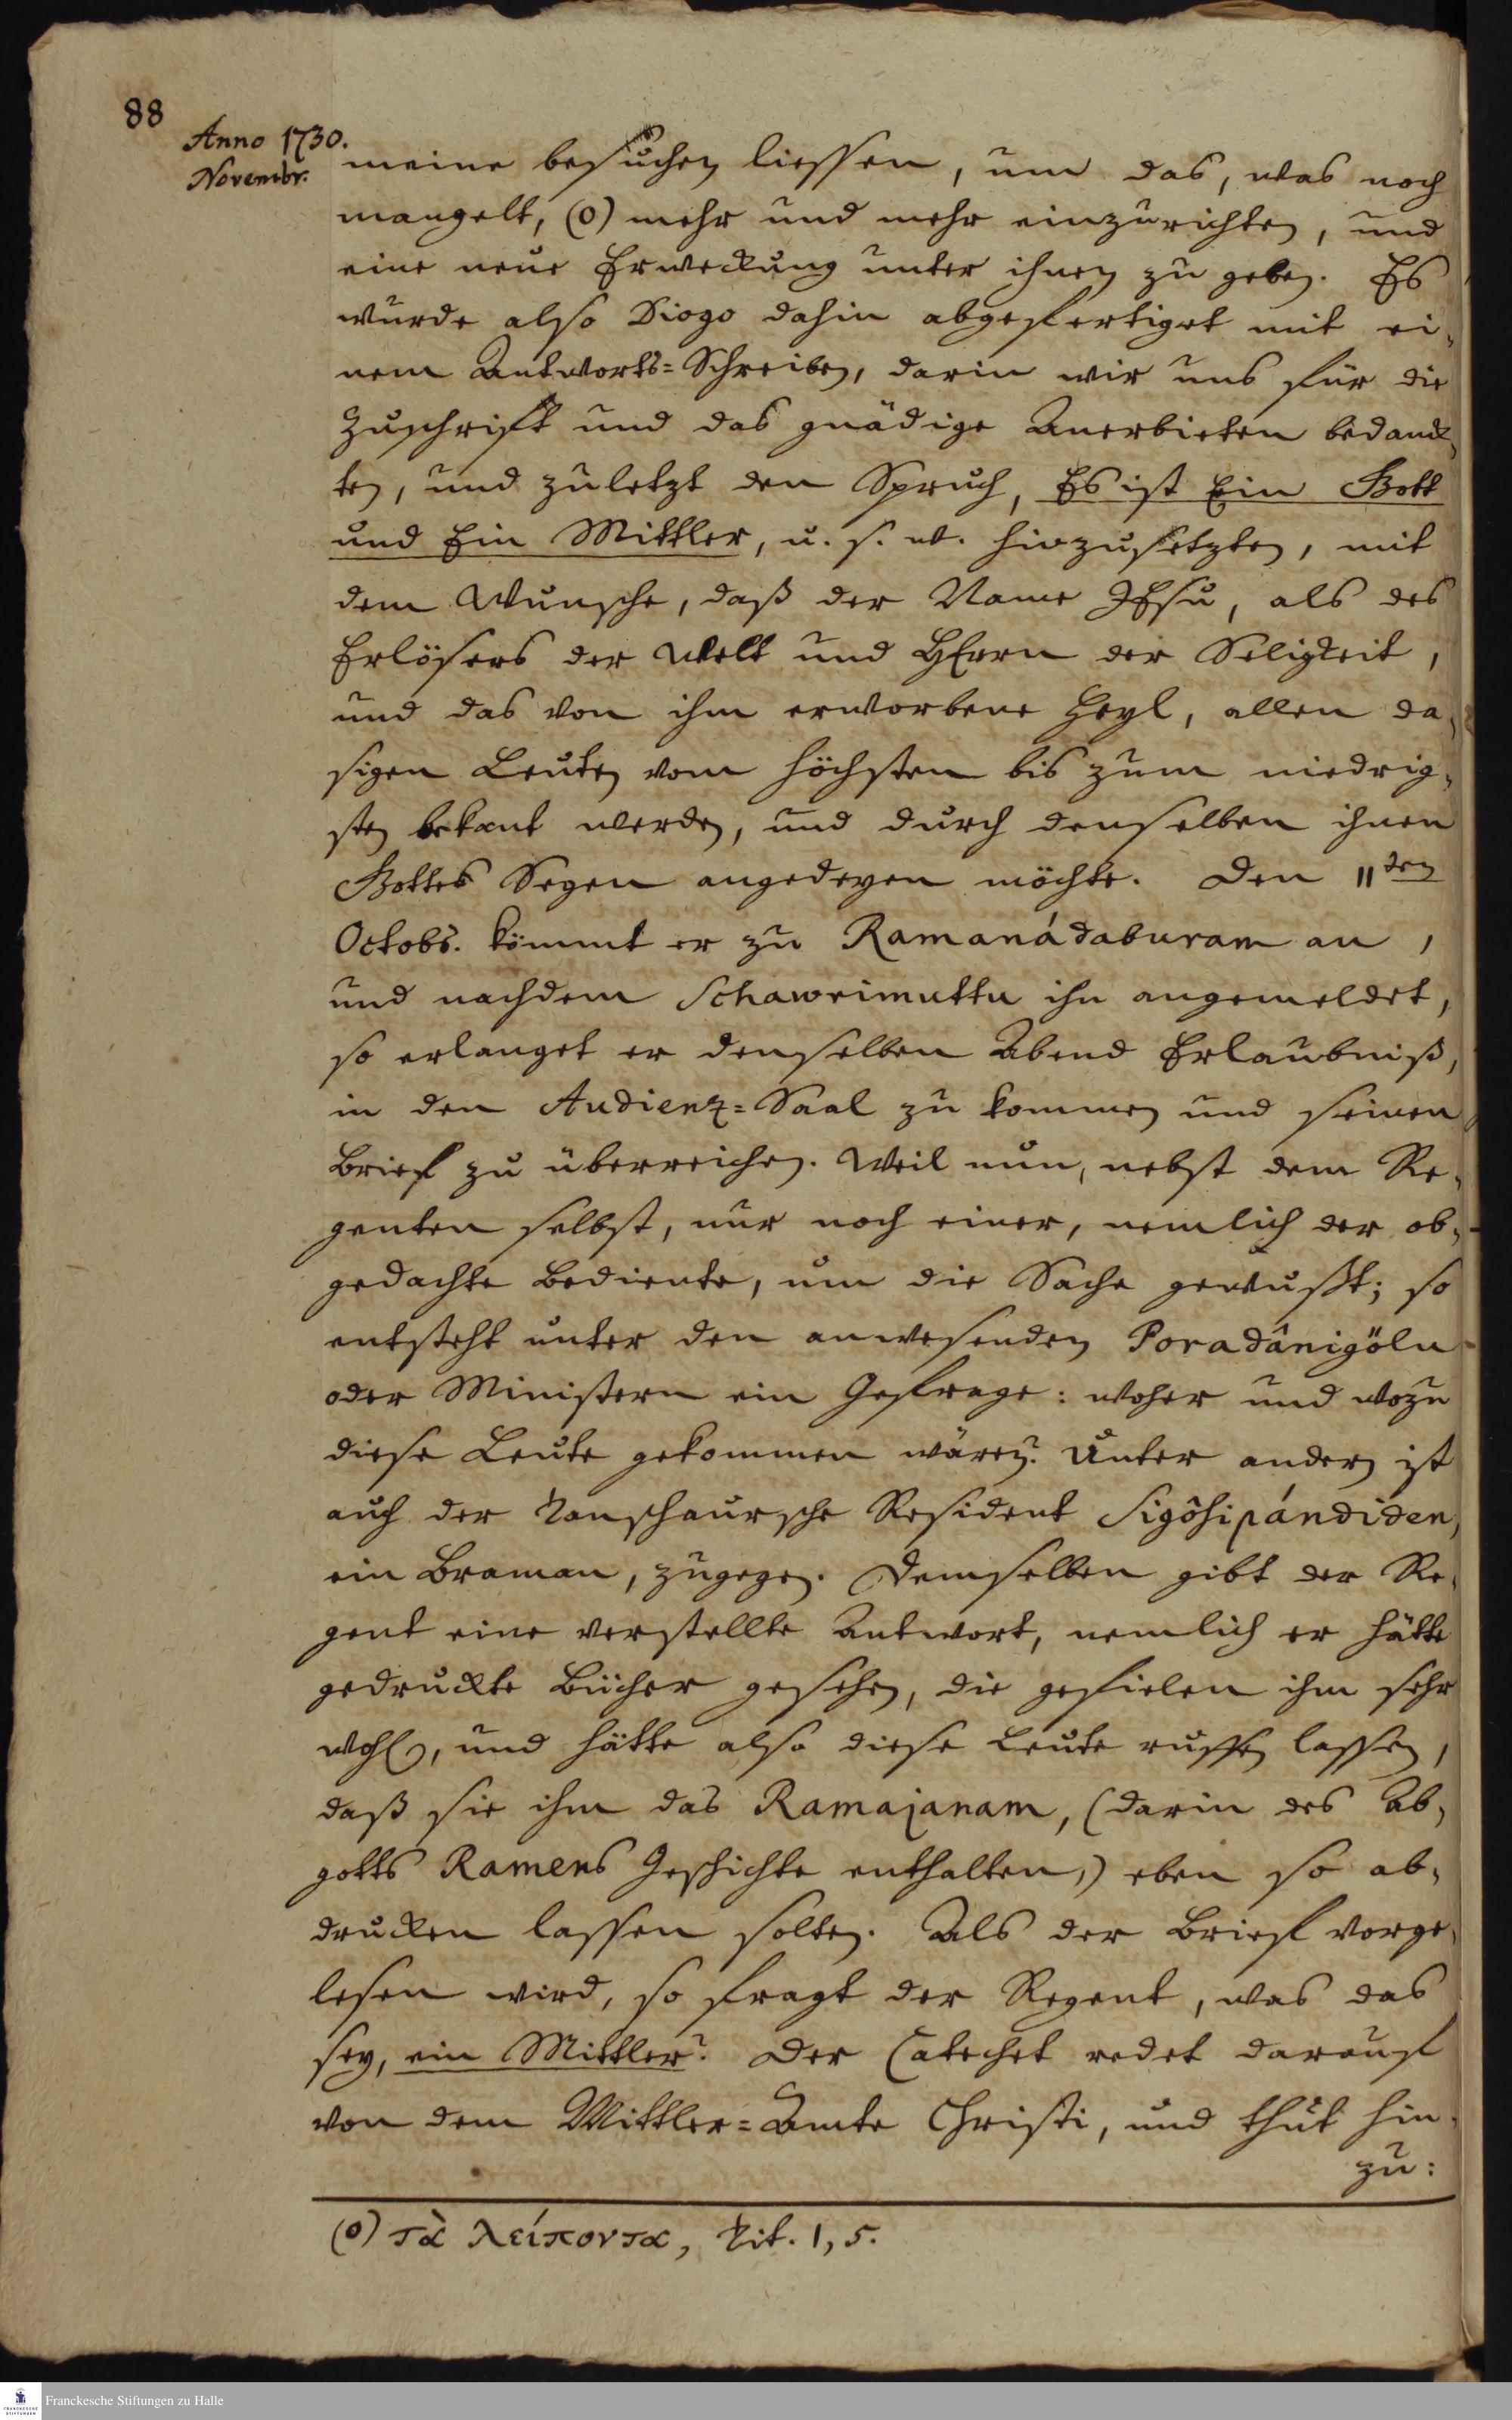 88
Anno 1730.
Novembr.
meine besuchen liessen, um das, was noch
mangelt, (o) mehr und mehr einzurichten, und
eine neue Erweckung unter ihnen zu geben. Es
wurde also Diogo dahin abgefertiget mit ei-
nem Antworts=Schreiben, darin wir uns für die
Zuschrift und das gnädige Anerbieten bedanck-
ten, und zuletzt den Spruch, Es ist Ein Gott
und Ein Mittler, u. s. w. hinzusetzten, mit
dem Wunsche, daß der Name JEsu, als des
Erlösers der Welt und HErrn der Seligkeit,
und das von ihm erworbene Heyl, allen da-
sigen Leuten vom höchsten bis zum niedrig-
sten bekant werden, und durch denselben ihnen
Gottes Segen angedeyen möchte. Den 11ten
Octobr. kömmt er zu Ramanádaburam an,
und nachdem Schawrimuttu ihn angemeldet,
so erlanget er denselben Abend Erlaubniß,
in den Audienz=Saal zu kommen und seinen
Brief zu überreichen. Weil nun, nebst dem Re-
genten selbst, nur noch einer, nemlich der ob-
gedachte Bediente, um die Sache gewußt; so
entsteht unter den anwesenden Poradânigöln
oder Ministern ein Gefrage: woher und wozu
diese Leute gekommen wären? Unter andern ist
auch der Tanschaursche Resident Sigôsipándiden,
ein Braman, zugegen. Demselben gibt der Re-
gent eine verstellte Antwort, nemlich er hätte
gedruckte Bücher gesehen, die gefielen ihm sehr
wohl, und hätte also diese Leute ruffen lassen,
daß sie ihm das Ramajanam, (darin des Ab-
gotts Ramens Geschichte enthalten,) eben so ab-
drucken lassen solten. Als der Brief vorge-
lesen wird, so fragt der Regent, was das
sey, ein Mittler? Der Catechet redet darauf
von dem Mittler=Amte Christi, und thut hin-
zu:
(o) τὰ λείποντα, Tit. 1, 5.
Franckesche Stiftungen zu Halle